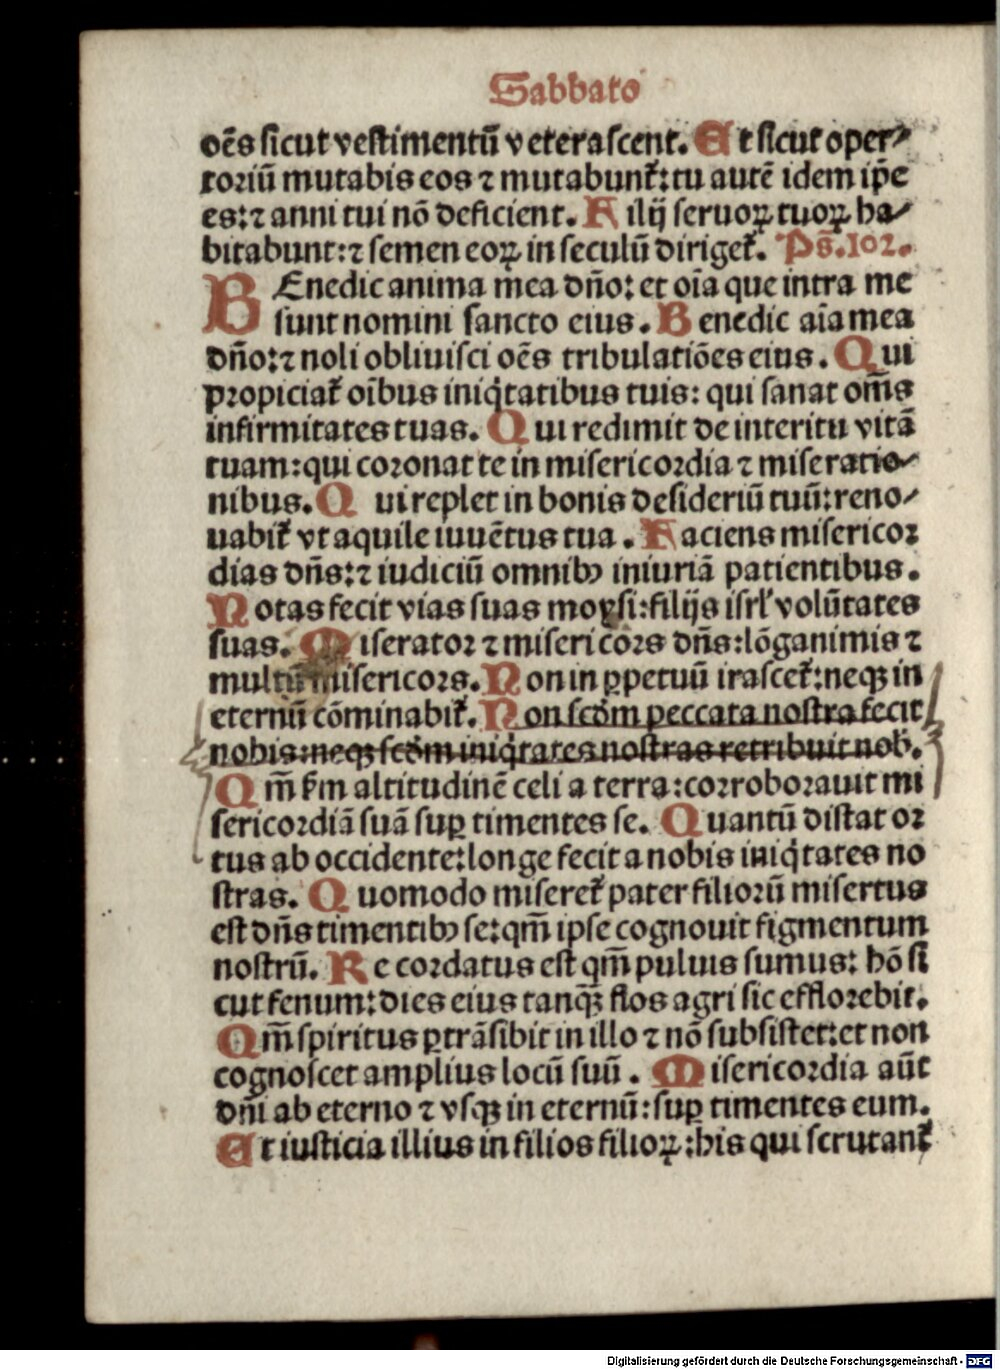 Sabbato
oēs sicut vestimentū veterascent. Et sicut oper⸗
toriū mutabis eos ⁊ mutabunt᷑: tu autē idem ip̄e
es: ⁊ anni tui nō deficient. Filij seruoꝝ tuoꝝ ha⸗
bitabunt: ⁊ semen eoꝝ in seculū diriget᷑. Ps̄. 102.
BEnedic anima mea dño: et oīa que intra me
sunt nomini sancto eius. Benedic aīa mea
dño: ⁊ noli obliuisci oēs tribulatiōes eius. Qui
propiciat᷑ oībus iniq̇tatibus tuis: qui sanat om̄s
infirmitates tuas. Qui redimit de interitu vitā
tuam: qui coronat te in misericordia ⁊ miseratio⸗
nibus. Qui replet in bonis desideriū tuū: reno⸗
uabit᷑ vt aquile iuuētus tua. Faciens misericor
dias dñs: ⁊ iudiciū omnibꝰ iniuriā patientibus.
Notas fecit vias suas moysi: filijs isrl̓ volūtates
suas. Miserator ⁊ misericors dñs: lōganimis ⁊
multū misericors. Non in ꝑpetuū irascet᷑: neqꝫ in
eternū cōminabit᷑. Non scd̄m peccata nostra fecit
nobis: neqꝫ scd̄m iniq̇tates nostras retribuit nob̄.
Qm̄ ẜm altitudinē celi a terra: corroborauit mi
sericordiā suā suꝑ timentes se. Quantū distat or
tus ab occidente: longe fecit a nobis iniq̇tates no
stras. Quomodo miseret᷑ pater filiorū misertus
est dñs timentibꝰ se: qm̄ ipse cognouit figmentum
nostrū. Recordatus est qm̄ puluis sumus: hō si
cut fenum: dies eius tanqꝫ̄ flos agri sic efflorebit.
Qm̄ spiritus ꝑtrāsibit in illo ⁊ nō subsistet: et non
cognoscet amplius locū suū. Misericordia aūt
dñi ab eterno ⁊ vsqꝫ in eternū: suꝑ timentes eum.
Et iusticia illius in filios filioꝝ: his qui seruant᷑
Digitalisierung gefördert durch die Deutsche Forschungsgemeinschaft - DFG